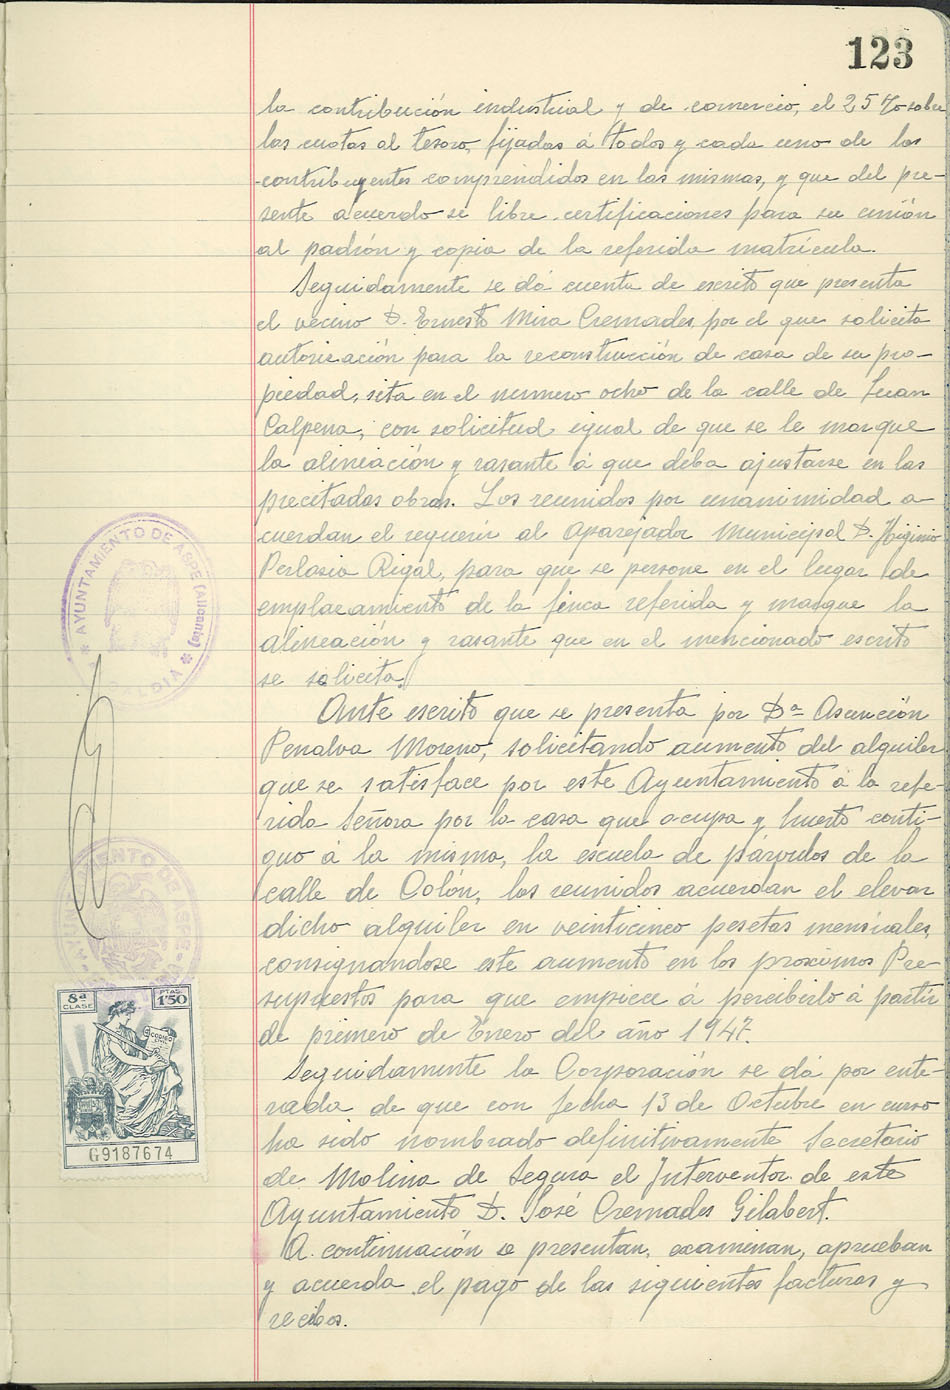 123
la contribución industrial y de comercio, el 25 % sobre
las cuotas al tesoro, fijadas á todos y cada uno de los
contribuyentes comprendidos en las mismas, y que del pre-
sente acuerdo se libre certificaciones para su unión
al padrón y copia de la referida matrícula.
Seguidamente se dá cuenta de escrito que presenta
el vecino D. Ernesto Mira Cremades, por el que solicita
autorización para la reconstrucción de casa de su pro-
piedad, sita en el numero ocho de la calle de Juan
Calpena, con solicitud igual de que se le marque
la alineación y rasante á que deba ajustarse en las
precitadas obras. Los reunidos por unanimidad a-
cuerdan el requerir al Aparejador Municipal D. Higinio
Perlasia Rigal, para que se persone en el lugar de
emplazamiento de la finca referida y marque la
alineación y rasante que en el mencionado escrito
se solicita.
Ante escrito que se presenta por Dª Asunción
Penalva Moreno, solicitando aumento del alquiler
que se satisface por este Ayuntamiento á la refe-
rida Señora por la casa que ocupa y huerto conti-
guo á la misma, la escuela de párvulos de la
calle de Colón, los reunidos acuerdan el elevar
dicho alquiler en veinticinco pesetas mensuales,
consignandose este aumento en los proximos Pre-
supuestos para que empiece á percibirlo á partir
de primero de Enero del año 1947.
Seguidamente la Corporación se dá por ente-
rada de que con fecha 13 de Octubre en curso
ha sido nombrado definitivamente Secretario
de Molina de Segura el Interventor de este
Ayuntamiento D. José Cremades Gilabert.
A continuación se presentan, examinan, aprueban
y acuerda el pago de las siguientes facturas y
recibos.
AYUNTAMIENTO DE ASPE (Alicante)
ALCALDIA
AYUNTAMIENTO DE ASPE
8ª CLASE
PTAS. 1'50
G9187674